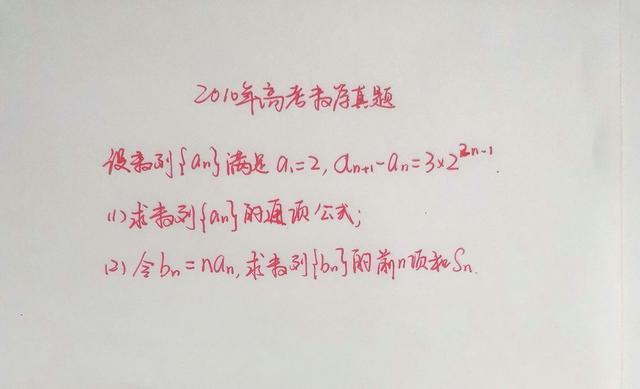 2010年高考数学真题
设数列{an}满足a1=2, an+1-an=3×2^2n-1.
(1)求数列{an}的通项公式;
(2)令bn=nan,求数列{bn}的前n项和Sn.